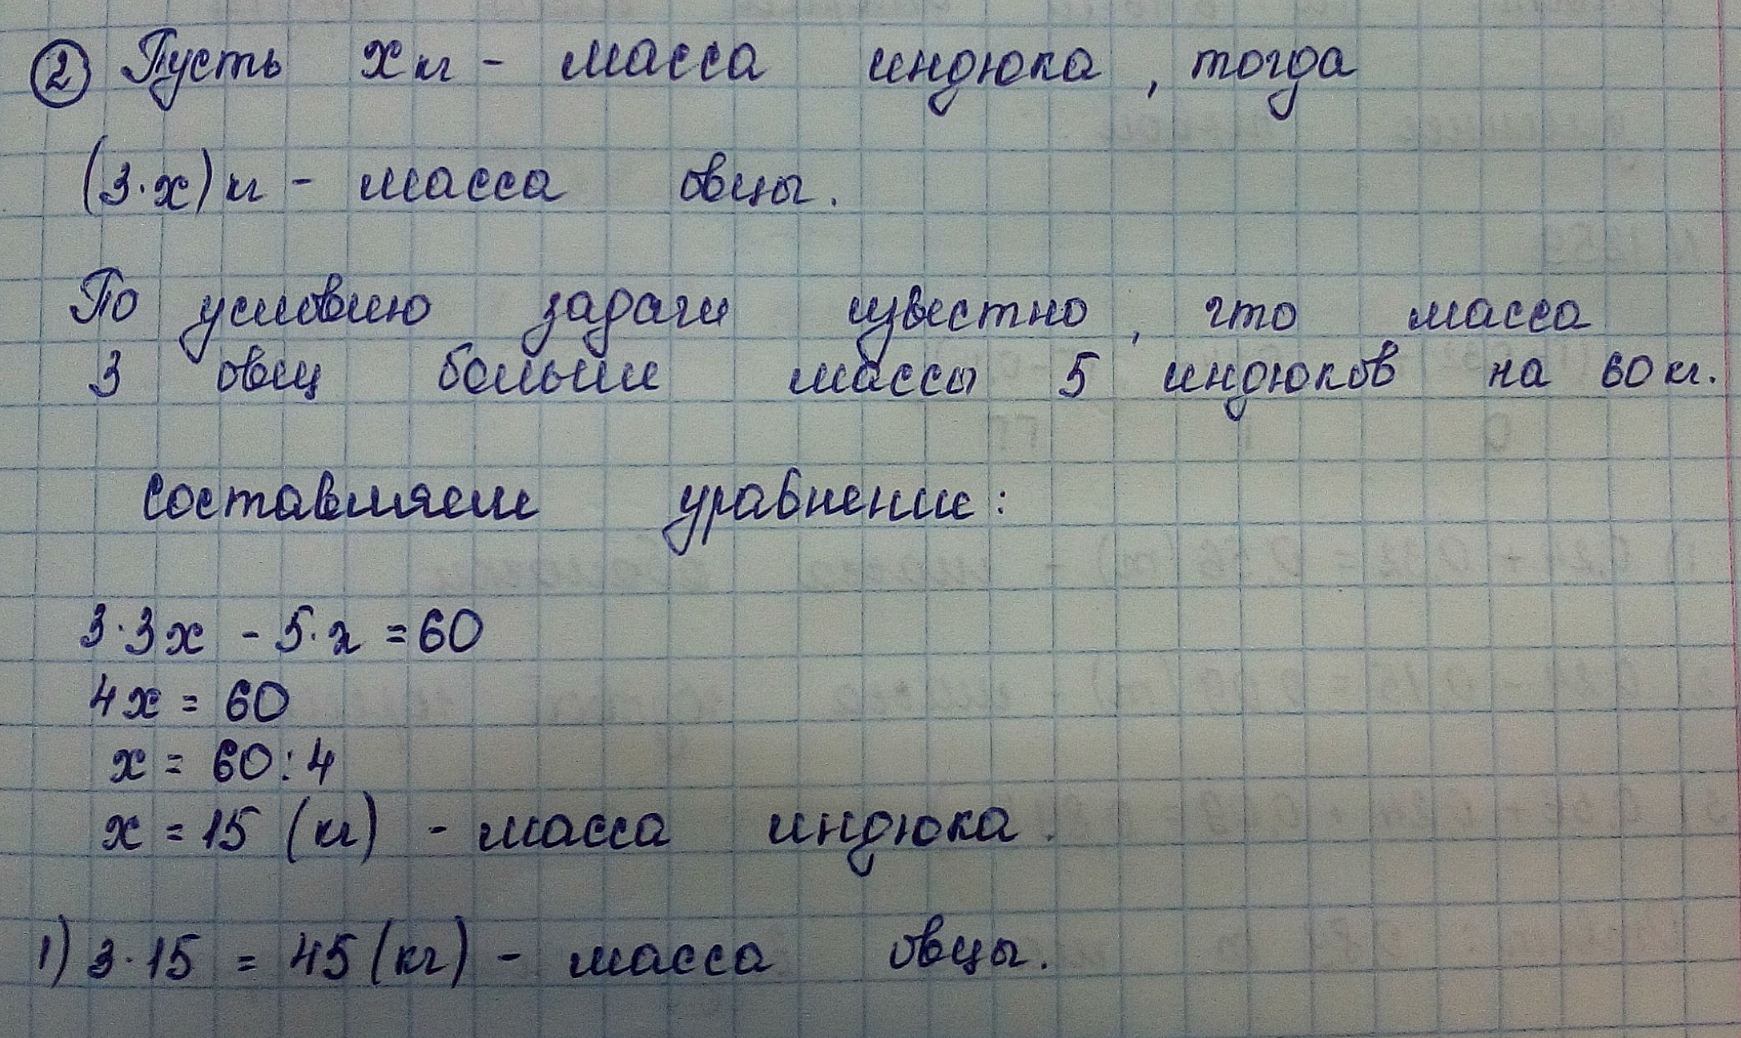 ② Пусть х кг - масса индюка, тогда
(3·х) кг - масса овцы.
По условию задачи известно, что масса
3 овец больше массы 5 индюков на 60 кг.
Составляем уравнение:
3·3х - 5·х = 60
4х = 60
х = 60:4
х = 15 (кг) - масса индюка.
1) 3·15 = 45 (кг) - масса овцы.